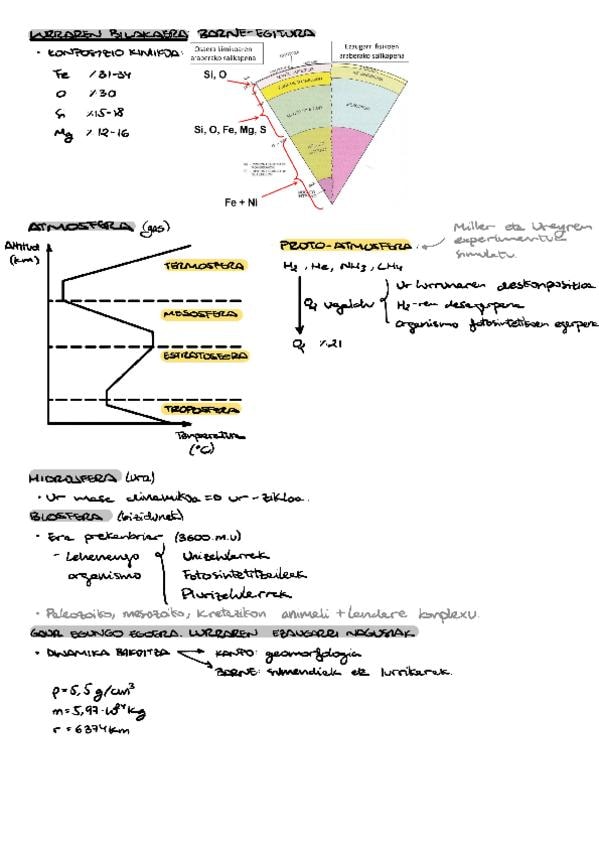 LURRAREN BILAKAERA: BARNE-EGITURA
• KONPOSIZIO KIMIKOA:
Fe %31-34
O %30
Si %15-18
Mg %12-16
Osaera kimikoaren araberako sailkapena
Ezaugarri fisikoen araberako sailkapena
Si, O
Si, O, Fe, Mg, S
Fe + Ni
ATMOSFERA (gas)
Altitud (km)
TERMOSFERA
MESOSFERA
ESTRATOSFERA
TROPOSFERA
Tenperatura (°C)
PROTO-ATMOSFERA
Miller eta Ureyren experimentuz simulatu.
H₂, He, NH₃, CH₄
O₂ ugaldu
ur lurrunaren deskonposizioa
H₂-ren desagerpena
organismo fotosintetikoen agerpena
O₂ %21
HIDROSFERA (ura)
• Ur masa dinamikoa => ur-zikloa.
BIOSFERA (bizidunek)
• Era prekanbriar (3600 m.u)
- Lehenengo organismo
Unizelularrak
Fotosintetitzaileak
Plurizelularrak
• Paleozoiko, mesozoiko, kretazikon animali + landare konplexu.
GAUR EGUNGO EGOERA. LURRAREN EZAUGARRI NAGUSIAK
• DINAMIKA BAKOITZA
KANPO: geomorfologia
BARNE: sumendiak eta lurrikarak.
ρ = 5,5 g/cm³
m = 5,97·10²⁴ kg
r = 6374 km